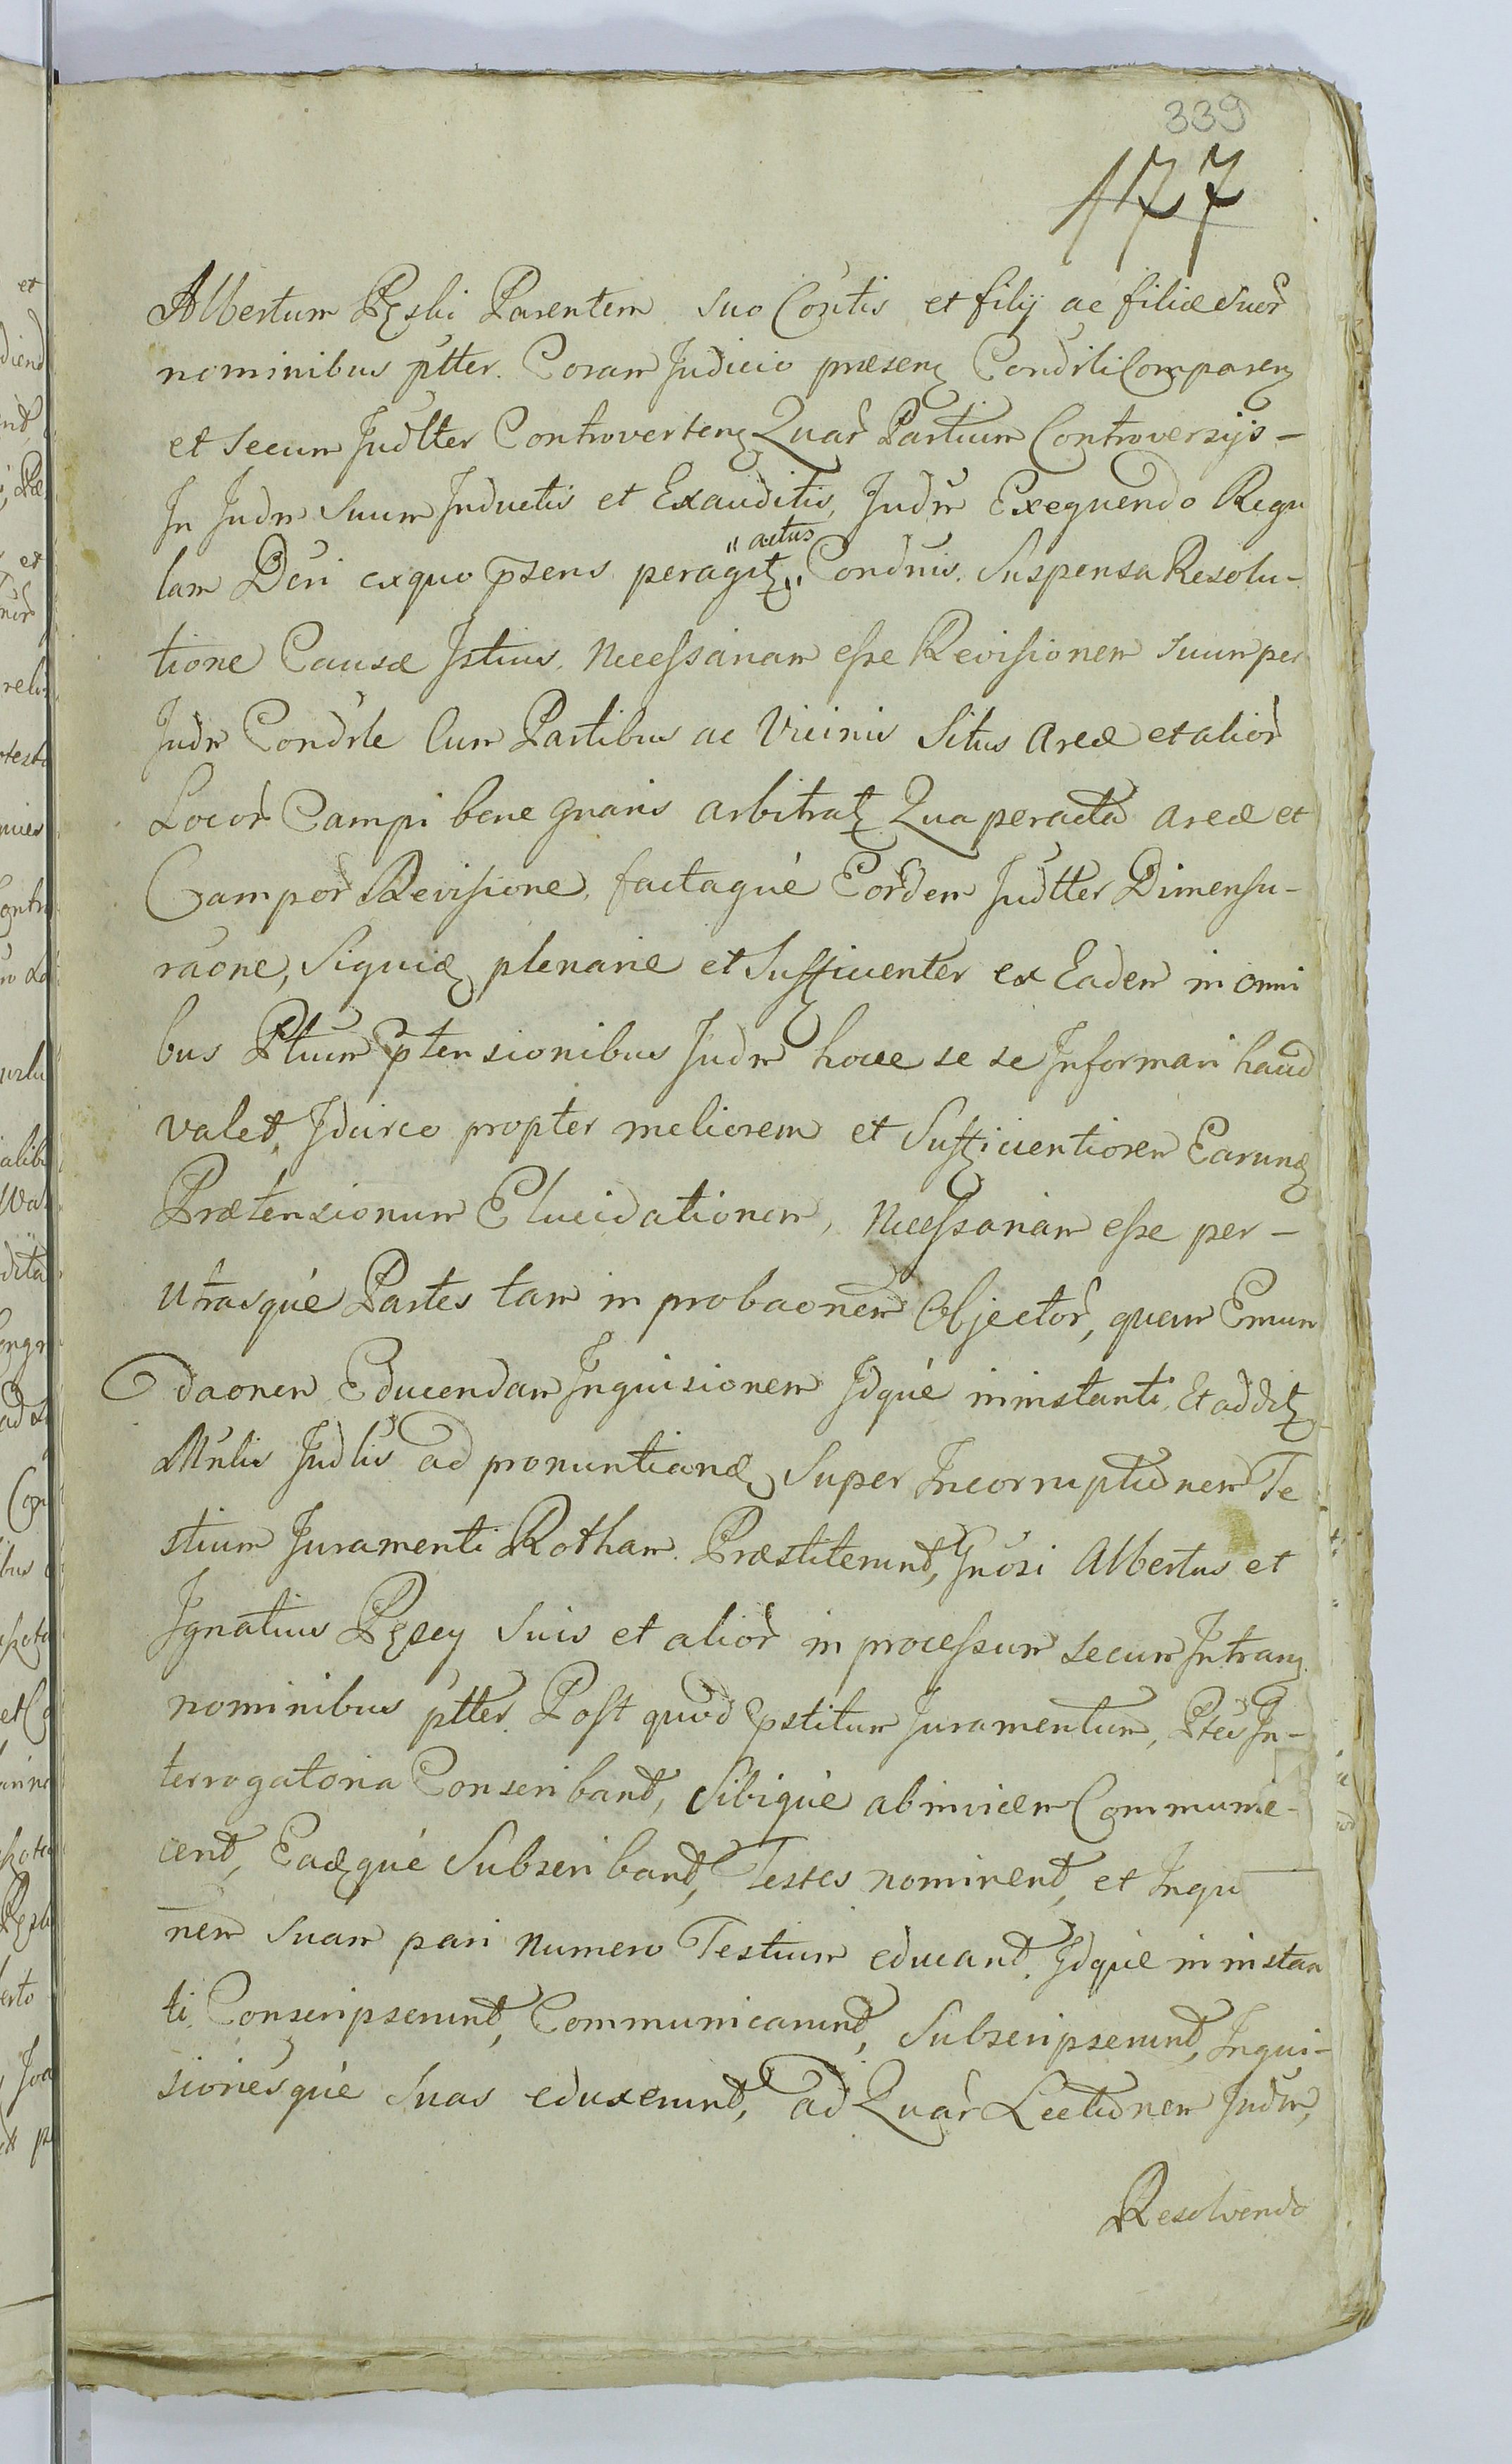 339
177
Albertum Pęski Parentem suo Con̄tis et filij ac filiæ suor̄
nominibus ptter. Coram Judicio præsenȝ Cond̄rli Comparenȝ
et secum Jud̄lter Controvertenȝ Quar̄ Partium Controversijs -
In Jud̄m suum Inductis et Exauditis, Jud̄m Exequendo Regu
lam Dc̄ri ex quo p̄sens peragitȝ „actus„ Cond̄nis. Suspensa Resolu-
tione Causæ Istius, Necessariam esse Revisionem suum per
Jud̄m Cond̄rle Cum Partibus ac Vicinis Situs Areæ et alior̄
Locor̄ Campi bene gnaris arbitratȝ Qua peracta Areæ et
Campor̄ Revisione, factaqué Eor̄dem Jud̄tter Dimensu-
raōne, Siquidȝ plenarie et Sufficienter ex Eadem in omni
bus Ptium p̄tensionibus Jud̄m hocce se se Informari haud
valet, Idcirco propter meliorem et Sufficientiorem Earundȝ
Prætensionum Elucidationem, Necessariam esse per -
utrasqué Partes tam in probaōnem Objector̄, quam Emun
daōnem Educendam Inquisionem Idqué in instanti, Et additȝ
Mnl̄is Jud̄lis ad pronuntiandȝ Super Incorruptionem Te
stium Juramenti Rotham. Præstiterunt, Gn̄osi Albertus et
Ignatius Pęscy Suis et alior̄ in processum secum Intranȝ
nominibus ptter. Post quod p̄stitum Juramentum, Ptes In-
terrogatoria Conscribant, Sibiqué ab invicem Communi-
cent, Eadȝqué Subscribant, Testes nominent, et Inqu
nem Suam pari Numero Testium educant. Idqué in instan
ti. Conscripserunt, Communicarunt, Subscripserunt, Inqui-
sionesqué Suas eduxerunt, ad Quar̄ Lectionem Jud̄m,
Resolvendo